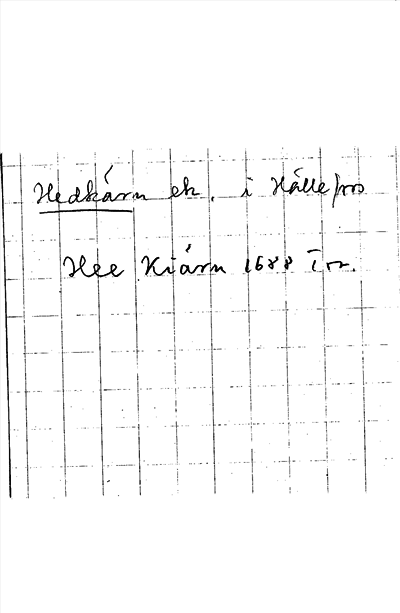 Hedkärn ek. i Hälle frs
Hee Kiärn 1688 Jr.